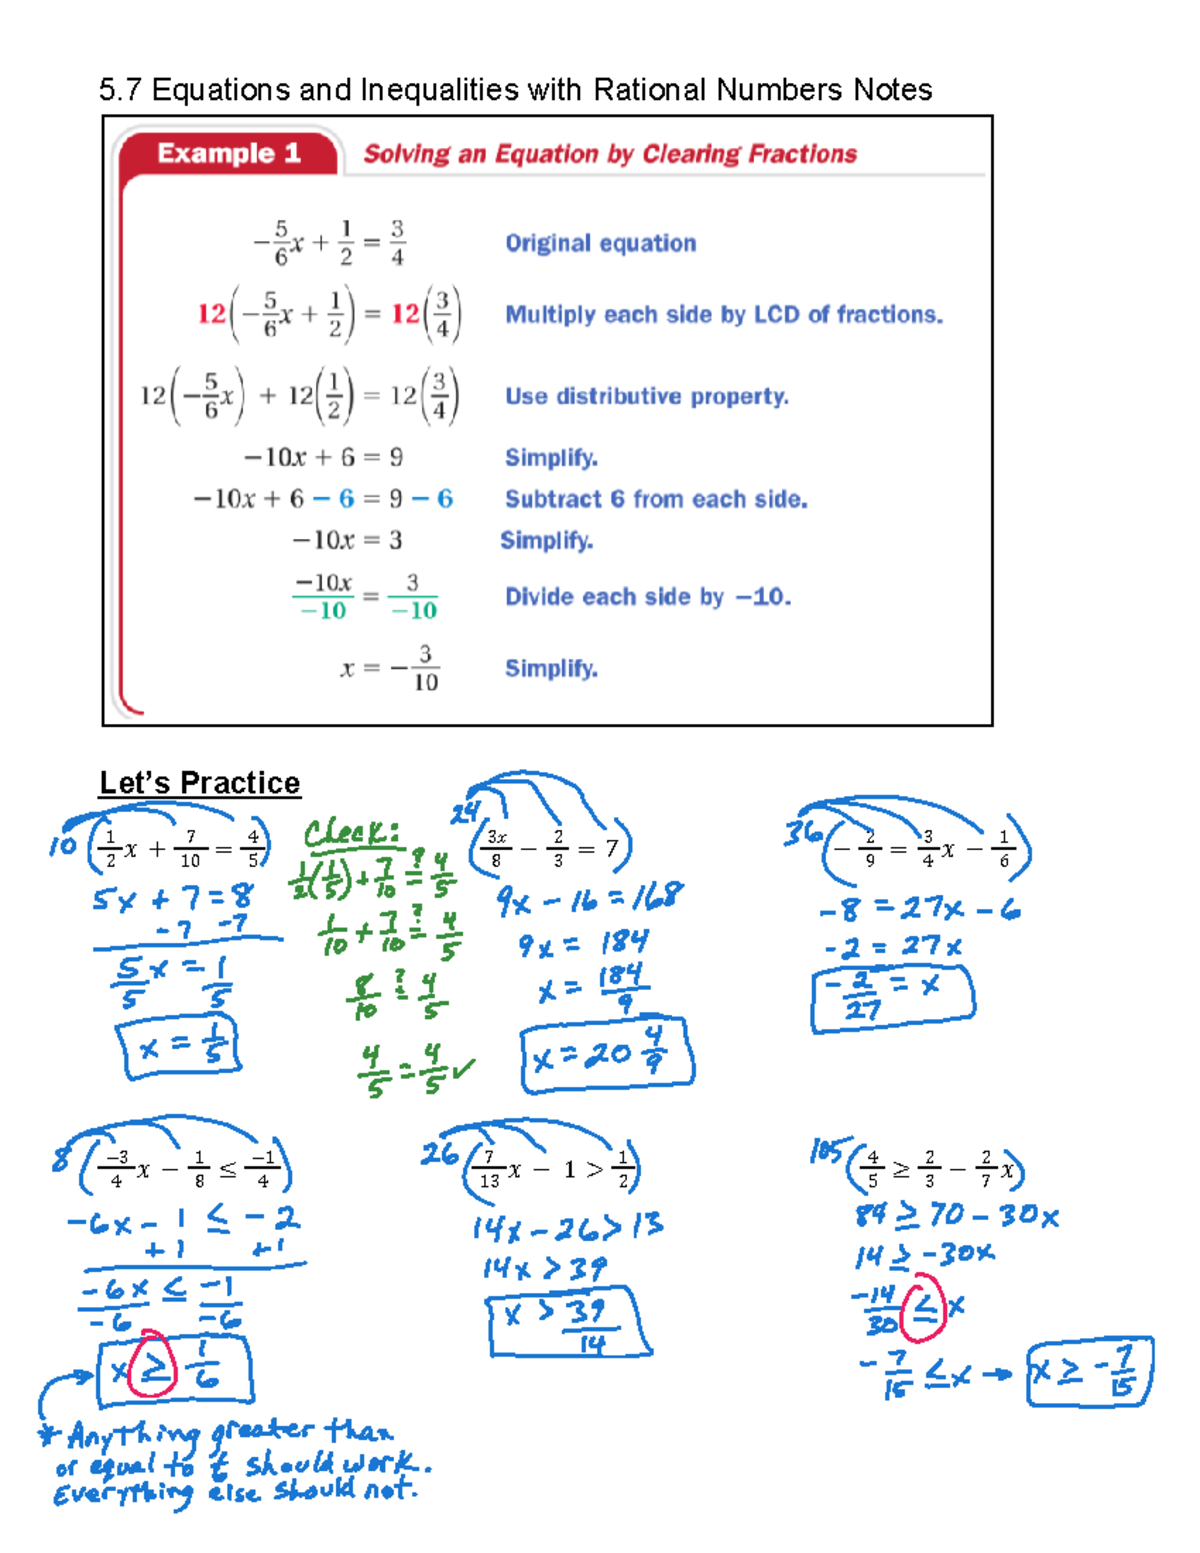 5.7 Equations and Inequalities with Rational Numbers Notes
Example 1 Solving an Equation by Clearing Fractions
-5/6x + 1/2 = 3/4 Original equation
12(-5/6x + 1/2) = 12(3/4) Multiply each side by LCD of fractions.
12(-5/6x) + 12(1/2) = 12(3/4) Use distributive property.
-10x + 6 = 9 Simplify.
-10x + 6 - 6 = 9 - 6 Subtract 6 from each side.
-10x = 3 Simplify.
-10x/-10 = 3/-10 Divide each side by -10.
x = -3/10 Simplify.
Let's Practice
10 (1/2x + 7/10 = 4/5)
5x + 7 = 8
-7 -7
5x/5 = 1/5
x = 1/5
Check:
1/2(1/5) + 7/10 ?= 4/5
1/10 + 7/10 ?= 4/5
8/10 ?= 4/5
4/5 = 4/5 ✓
24 (3x/8 - 2/3 = 7)
9x - 16 = 168
9x = 184
x = 184/9
x = 20 4/9
36 (-2/9 = 3/4x - 1/6)
-8 = 27x - 6
-2 = 27x
-2/27 = x
8 (-3/4x - 1/8 ≤ -1/4)
-6x - 1 ≤ -2
+1 +1
-6x/-6 ≤ -1/-6
x ≥ 1/6
* Anything greater than
or equal to 1/6 should work.
Everything else should not.
26 (7/13x - 1 > 1/2)
14x - 26 > 13
14x > 39
x > 39/14
105 (4/5 ≥ 2/3 - 2/7x)
84 ≥ 70 - 30x
14 ≥ -30x
-14/30 ≤ x
-7/15 ≤ x → x ≥ -7/15